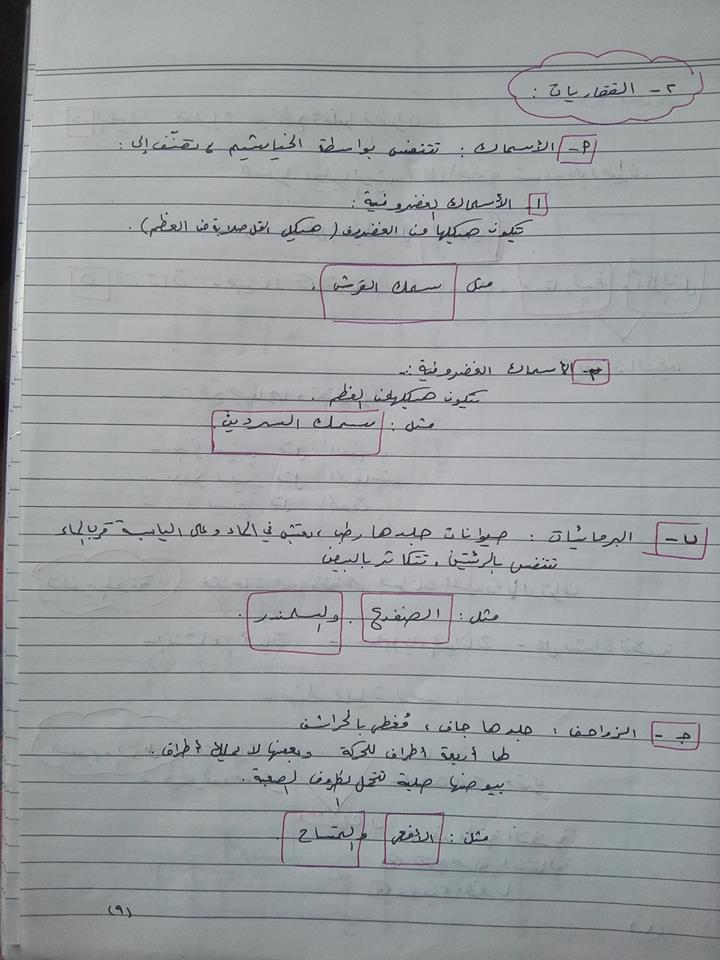 ٢- الفقاريات :
أ- الأسماك : تتنفس بواسطة الخياشيم و تصنّف إلى :
١ الأسماك الغضروفية :
يتكون هيكلها من الغضروف ( هيكل اقل صلابة من العظم ) .
مثل سمك القرش .
٢- الأسماك الغضروفية :
يتكون هيكلها من العظم .
مثل : سمك السردين .
ب- البرمائيات : حيوانات جلدها رطب ، يعيش في الماء و على اليابسة قرب الماء
تتنفس بالرئتين ، تتكاثر بالبيض
مثل : الضفدع . والسلمندر .
جـ- الزواحف : جلدها جاف ، مُغطى بالحراشف
لها أربعة أطراف للحركة وبعضها لا يملك أطراف .
بيوضها صلبة لتحمل الظروف الصعبة .
مثل : الأفعى والتمساح .
(٩)